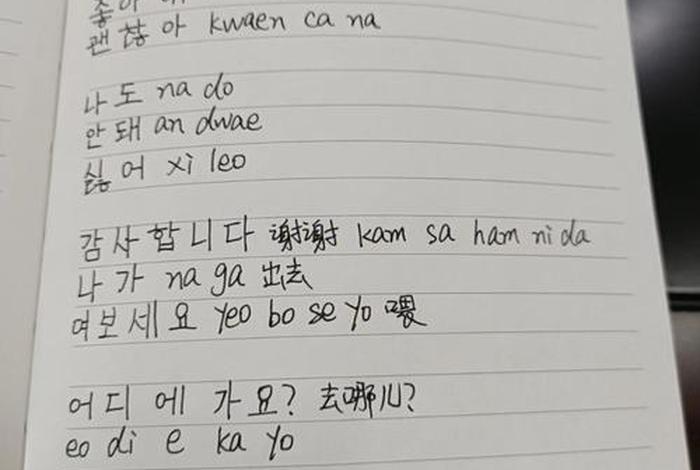 좋아
괜찮아 kwaen ca na
나도 na do
안돼 an dwae
싫어 xi leo
감사합니다 谢谢 kam sa ham ni da
나가 na ga 出去
여보세요 yeo bo se yo 喂
어디에 가요? 去哪儿?
eo di e ka yo